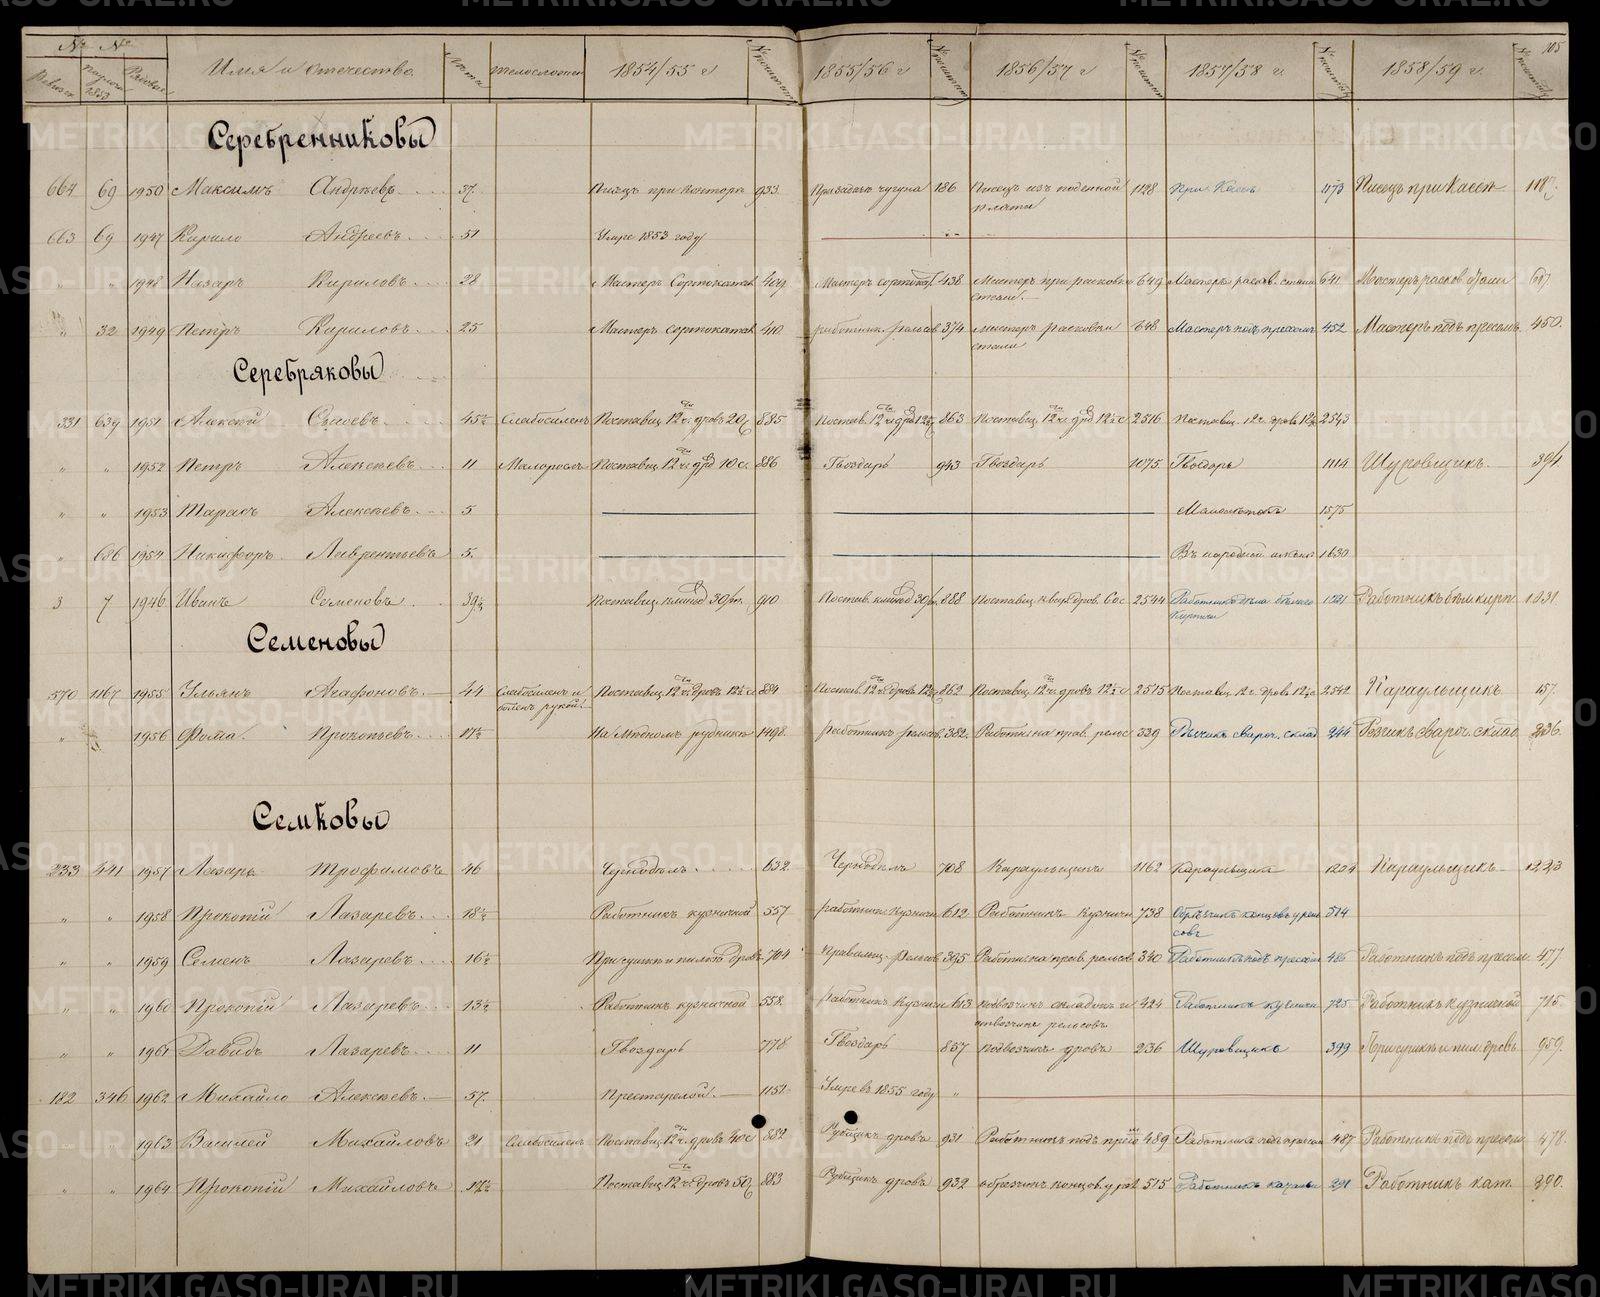 № № Имя и отчество Лѣта Телосложен 1854/55 г 1855/56 г 1856/57 г 1857/58 г. 1858/59 г. 105
Серебренниковы
664 69 1950 Максимъ Андреевъ 37. Писецъ при Конторѣ 933 186 Писецъ изъ поденной 1128 При Кассѣ 1173 Писецъ при Кассѣ 1187
платы
663 69 1947 Кирило Андреевъ 51 Умре 1853 году
" " 1948 Назаръ Кириловъ 28 Мастеръ Сортокатал 409 Мастеръ сортокат. 438 Мастеръ при расковкѣ 649 Мастеръ расков. стали 641 Мастеръ расков. стали
стали.
" 32 1949 Петръ Кириловъ 25 Мастеръ сортокатал 410 работник рельсов 374 мастеръ расковки 648 Мастеръ подъ прессомъ 452 Мастеръ подъ прессомъ 450.
стали
Серебряковы
331 639 1951 Алексей Сысоевъ 45½ Слабосиленъ Поставщ. 12 чт. дровъ 20 с 885 Постав. 12 863 Поставщ. 12 2516 Поставщ. 12 ч. дровъ 12½ 2543
" " 1952 Петръ Алексѣевъ 11 Малорослъ Поставщ. 12 10 с. 886 Гвоздарь 943 Гвоздарь 1075 Гвоздарь 1114 Шуровщикъ. 394
" " 1953 Тарасъ Алексѣевъ 5 Малолѣтокъ 1575
" 686 1954 Никифоръ Лаврентьевъ 5. Въ 1630
3 7 1946 Иванъ Семеновъ 39½ Поставщ. 910 Постав. 888 Поставщ. дров. 60 с 2544 Работникъ дѣла бѣлаго 1281 Работникъ бѣл. кирп. 1031
кирпича
Семеновы
570 1167 1955 Ульянъ Агафоновъ 44 Слабосиленъ и Поставщ. 12 чт. дровъ 12½ с 884 Постав. 12 чт. дровъ 12½ 862 Поставщ. 12 чт. дровъ 12½ с 2515 Поставщ. 12 ч. дровъ 12½ с 2542 Караульщикъ 157.
боленъ рукой
" 1956 Фома. Прокопьевъ 17½ На Мѣдномъ рудникѣ 1498. работникъ рельсов. 382. Работн. на прав. рельс 339 Рѣзчикъ свароч. склад 244 Рѣзчикъ свароч. склад 236.
Семковы
233 441 1957 Лазарь Трофимовъ 46 Чернодѣлъ 632 Чернодѣлъ 708 Караульщикъ 1162 Караульщик 1204 Караульщикъ 1223
" " 1958 Прокопій Лазаревъ 18½ Работникъ кузничной 557 работник кузничн 612 Работникъ кузничн 738 Обрѣзчикъ концовъ у рель 514
совъ
" " 1959 Семенъ Лазаревъ 16½ При сушкѣ и пилкѣ дровъ 704 Правильщ. рельсов 395 Работн. на прав. рельсов 340 Работникъ подъ прессом 486 Работникъ подъ прессом 477.
" " 1960 Прокопій Лазаревъ 13½ Работникъ кузничной 558. работникъ кузничн 613 подвозчикъ складокъ и 424 Работникъ кузничн 725 Работникъ кузничной 715.
отвозчикъ рельсовъ
" " 1961 Давидъ Лазаревъ 11 Гвоздарь 778. Гвоздарь 857 подвозчикъ дровъ 236 Шуровщикъ 399 При сушкѣ и пил. дровъ 959.
182 346 1962 Михайло Алексѣевъ. 57. Престарелой. 1151. Умре въ 1855 году "
1963 Василей Михайловъ 21 Слабосиленъ Поставщ. 12 чт. дровъ 40 с 882 Рубщикъ дровъ 931 Работникъ подъ 489 Работникъ подъ прессом 487 Работникъ подъ прессом 478.
" " 1964 Прокопій Михайловъ 17½ Поставщ. 12 чт. дровъ 50 с 883 Рубщикъ дровъ 932 обрезчикъ концов. у рел 515 Работникъ 291 Работникъ кат. 290.
METRIKI.GASO-URAL.RU